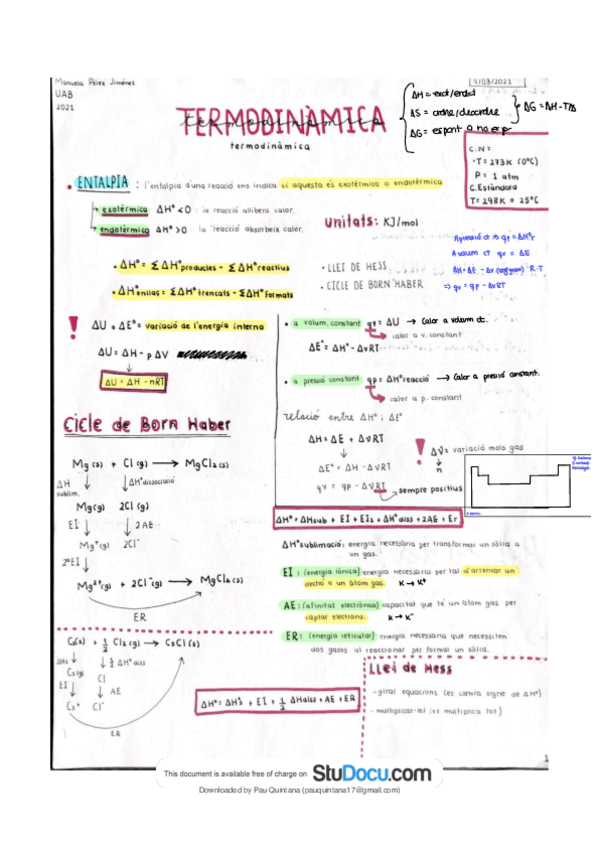 Manuela Pérez Jiménez
UAB
2021
4/03/2021
TERMODINÀMICA
termodinàmica
termodinàmica
ΔH = exot/endot
ΔS = ordre/desordre
ΔG = espont o no esp
ΔG = ΔH - TΔS
C.N =
· T = 273K (0°C)
P = 1 atm
C. Estàndard
T = 298K = 25°C
• ENTALPIA : l'entalpia d'una reacció ens indica si aquesta és exotèrmica o endotèrmica
exotèrmica ΔH° < 0 : la reacció allibera calor.
endotèrmica ΔH° > 0 : la reacció absorbeix calor.
unitats: KJ/mol
A pressió ct → qp = ΔH°r
A volum ct qv = ΔE
⇒ qv = qp - ΔνRT
• ΔH° = Σ ΔH° productes - Σ ΔH° reactius
• ΔH° enllaç = Σ ΔH° trencats - Σ ΔH° formats
• LLEI DE HESS
• CICLE DE BORN HABER
! ΔU o ΔE° = variació de l'energia interna
ΔU = ΔH - p ΔV
ΔU = ΔH - nRT
• a volum constant qv = ΔU → Calor a volum ct.
calor a v. constant
ΔE° = ΔH° - ΔνRT
• a pressió constant qp = ΔH° reacció → Calor a pressió constant.
calor a p. constant
relació entre ΔH° i ΔE°
ΔH = ΔE + ΔνRT
ΔE° = ΔH - ΔνRT
qv = qp - ΔνRT
sempre positius
! Δν = variació mols gas
n
Cicle de Born Haber
Mg (s) + Cl (g) → MgCl2 (s)
ΔH sublim.
ΔH° dissociació
Mg(g) 2Cl (g)
EI
2 AE
Mg+(g) 2Cl-
2ªEI
Mg2+(g) + 2Cl-(g) → MgCl2 (s)
ER
ΔH° = ΔHsub + EI + EI2 + ΔH° diss + 2AE + Er
ΔH° sublimació: energia necessària per transformar un sòlid a un gas.
EI : (energia iònica) energia necessària per tal d'arrencar un
electró a un àtom gas. K → K+
AE : (afinitat electrònica) capacitat que té un àtom gas per
captar electrons. K → K-
ER : (energia reticular) energia necessària que necessiten
dos gasos al reaccionar per formar un sòlid.
Cs(s) + 1/2 Cl2 (g) → CsCl (s)
ΔHs
1/2 ΔH° diss
Cs (g) Cl
EI
AE
Cs+ Cl-
ER
ΔH° = ΔH°s + EI + 1/2 ΔHdiss + AE + ER
Llei de Hess
- girar equacions (es canvia signe de ΔH°)
This document is available free of charge on StuDocu.com
Downloaded by Pau Quintana (pauquintana17@gmail.com)